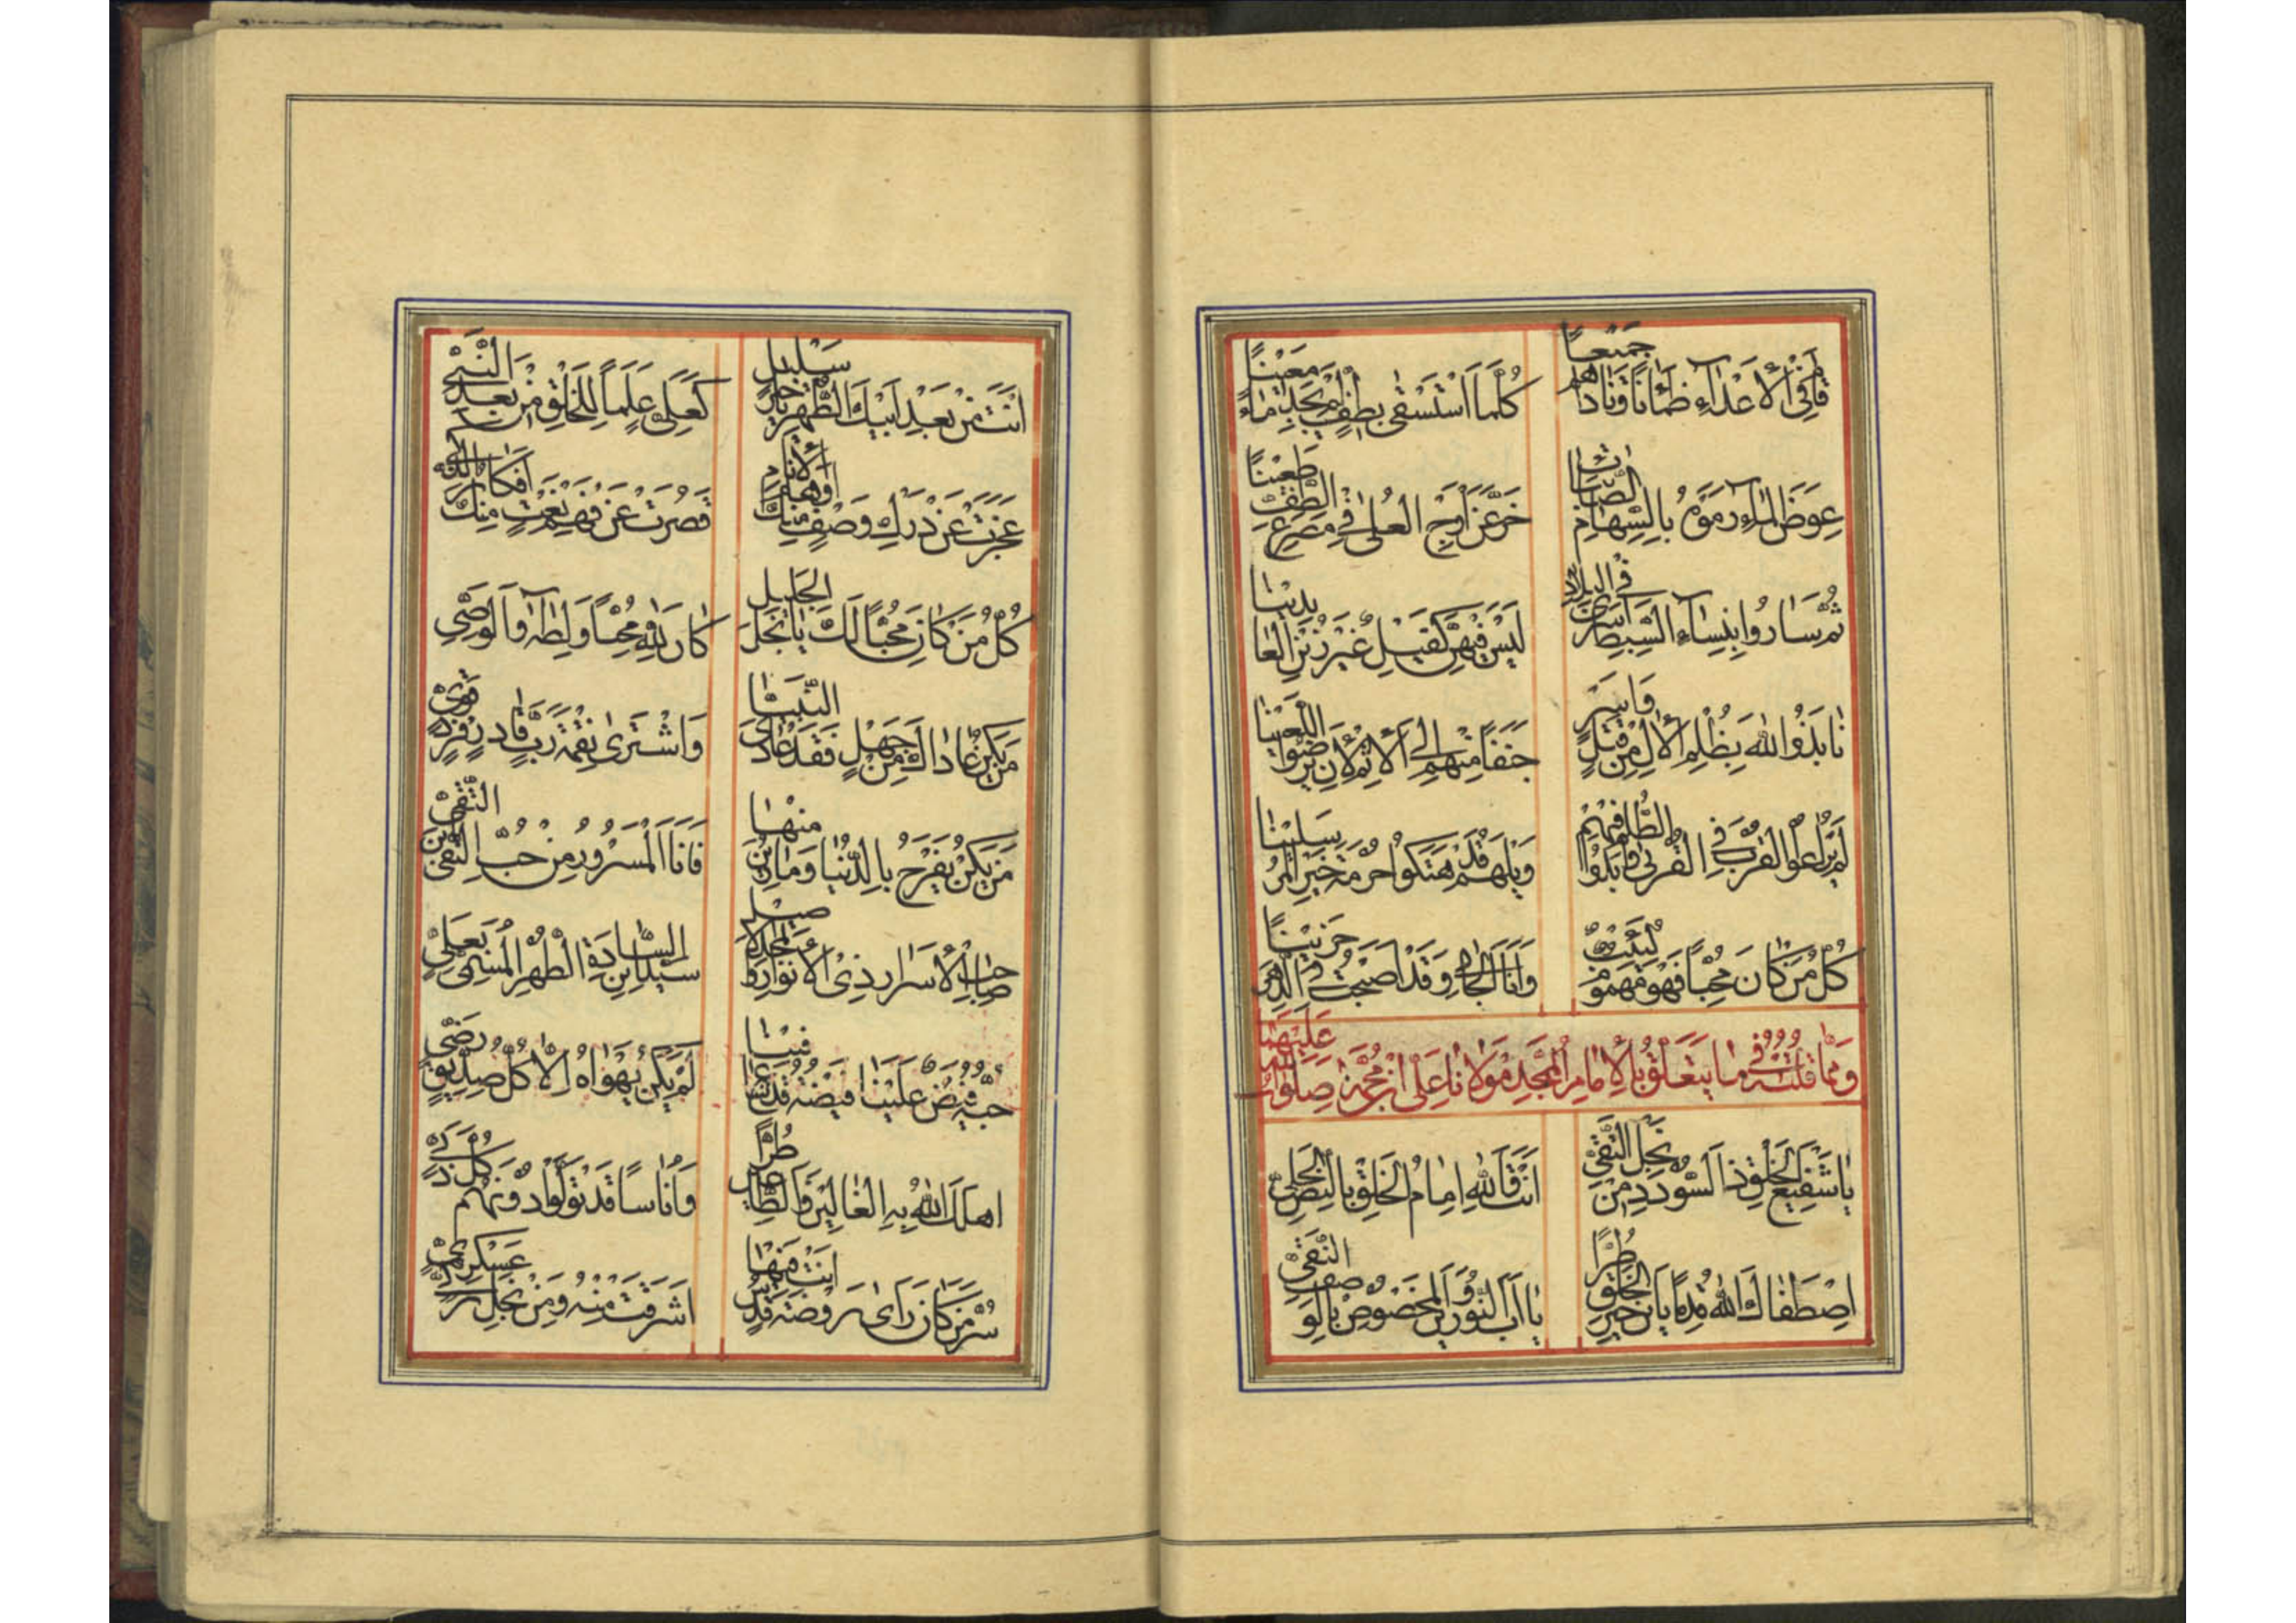 قام فى الأعداء ظمآنا وناداهم جميعا
كلما استسقى بطف لم يجد ماء معينا
عوض الماء رموه بالسهام الصائبات
خر عن اوج العلى فى مصرع الطف طعينا
ثم ساروا بنساء السبط اسرى فى البلاد
ليس فيهن كفيل غير زين العابدينا
نابذوا الله بظلم الآل من قتل واسر
جنفا منهم الى الاثم لان يرضوا اللعينا
لم يراعوا القرب فى القربى وابدوا الظلم فيهم
ويلهم قد هتكوا حرمة خير المرسلينا
كل من كان محبا فهو مهموم كئيب
وانا الجامى وقد اصبحت فى الدهر حزينا
ومما قلته فى ما يتعلق بالإمام الممجد مولانا على بن محمد صلوات الله عليهما
يا شفيع الخلق ذا السودد من نجل التقى
انت والله امام الخلق بالنص الجلى
اصطفاك الله قدما يا بن خير الخلق طرا
يا ابا النورين والمخصوص بالوصف النقى
انت من بعد ابيك الطهر يا خير سليل
كعلى علما للخلق من بعد النبى
عجزت عن درك وصف منك اوهام الأنام
قصرت عن فهم نعت منك افكار
كل من كان محبا لك يا نجل الجليل
كان لله محبا ولطه والوصى
من يكن عاداك من جهل فقد عادى النبيا
واشترى نقمة رب قادر فرد قوى
من يكن يفرح بالدنيا وما زين منها
فانا المسرور من حب النقى بن التقى
صاحب الأسرار ذى الأنوار والمجد الاصيل
سيد السادة ابن الطهر المسمى بعلى
حبه فيض علينا فيضه قد عم فينا
لم يكن يهواه الا كل صديق رضى
اهلك الله به الغالين والطاغين طرا
واناسا قد تولوا دونهم كل ذكى
سر من كان رأى روضة قدس انت فيها
اشرقت منه ومن نجل زكى عسكرى